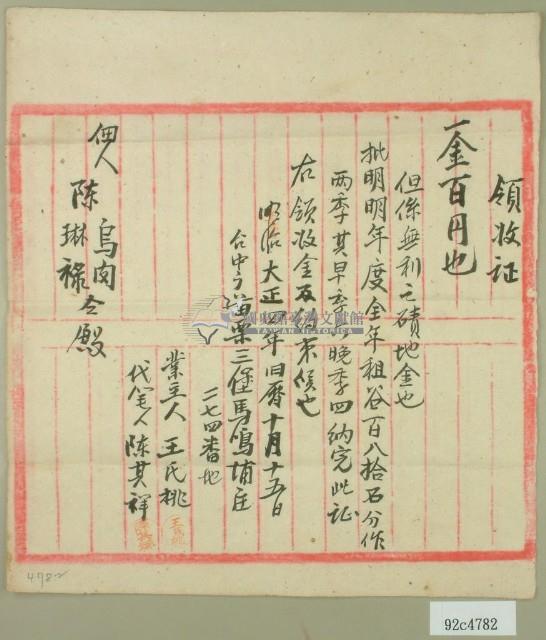 領收証
一金百円也
但係無利之磧地金也
批明明年度全年租谷百八拾石分作
两季其早六晚季四納完此証
右領收金及約束候也
明治大正年旧暦十月十五日
台中苗栗三堡馬鳴埔庄
二七四番地
業主人 王氏桃
代筆人 陳其祥
佃人 陈 烏肉 琳祿 仝殿
國史館臺灣文獻館
TAIWAN HISTORICA
4782
92c4782